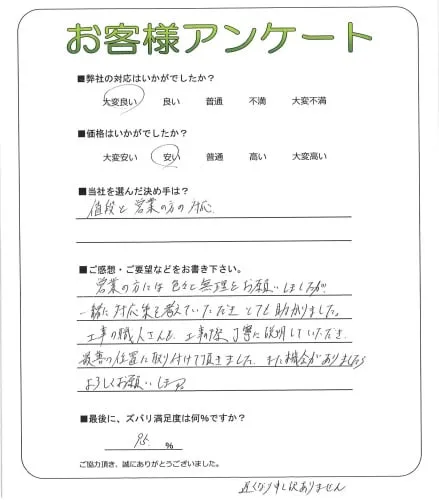 お客様アンケート
■弊社の対応はいかがでしたか？
大変良い 良い 普通 不満 大変不満
■価格はいかがでしたか？
大変安い 安い 普通 高い 大変高い
■当社を選んだ決め手は？
値段と営業の方の対応
■ご感想・ご要望などをお書き下さい。
営業の方には色々と無理をお願いしましたが、
一緒に対応策を考えていただきとても助かりました。
工事の職人さんも、工事の 丁寧に説明していただき、
最善の位置に取り付けて頂きました。また機会がありましたら
よろしくお願いします。
■最後に、ズバリ満足度は何%ですか？
95 %
ご協力頂き、誠にありがとうございました。
遅くなり申し訳ありません